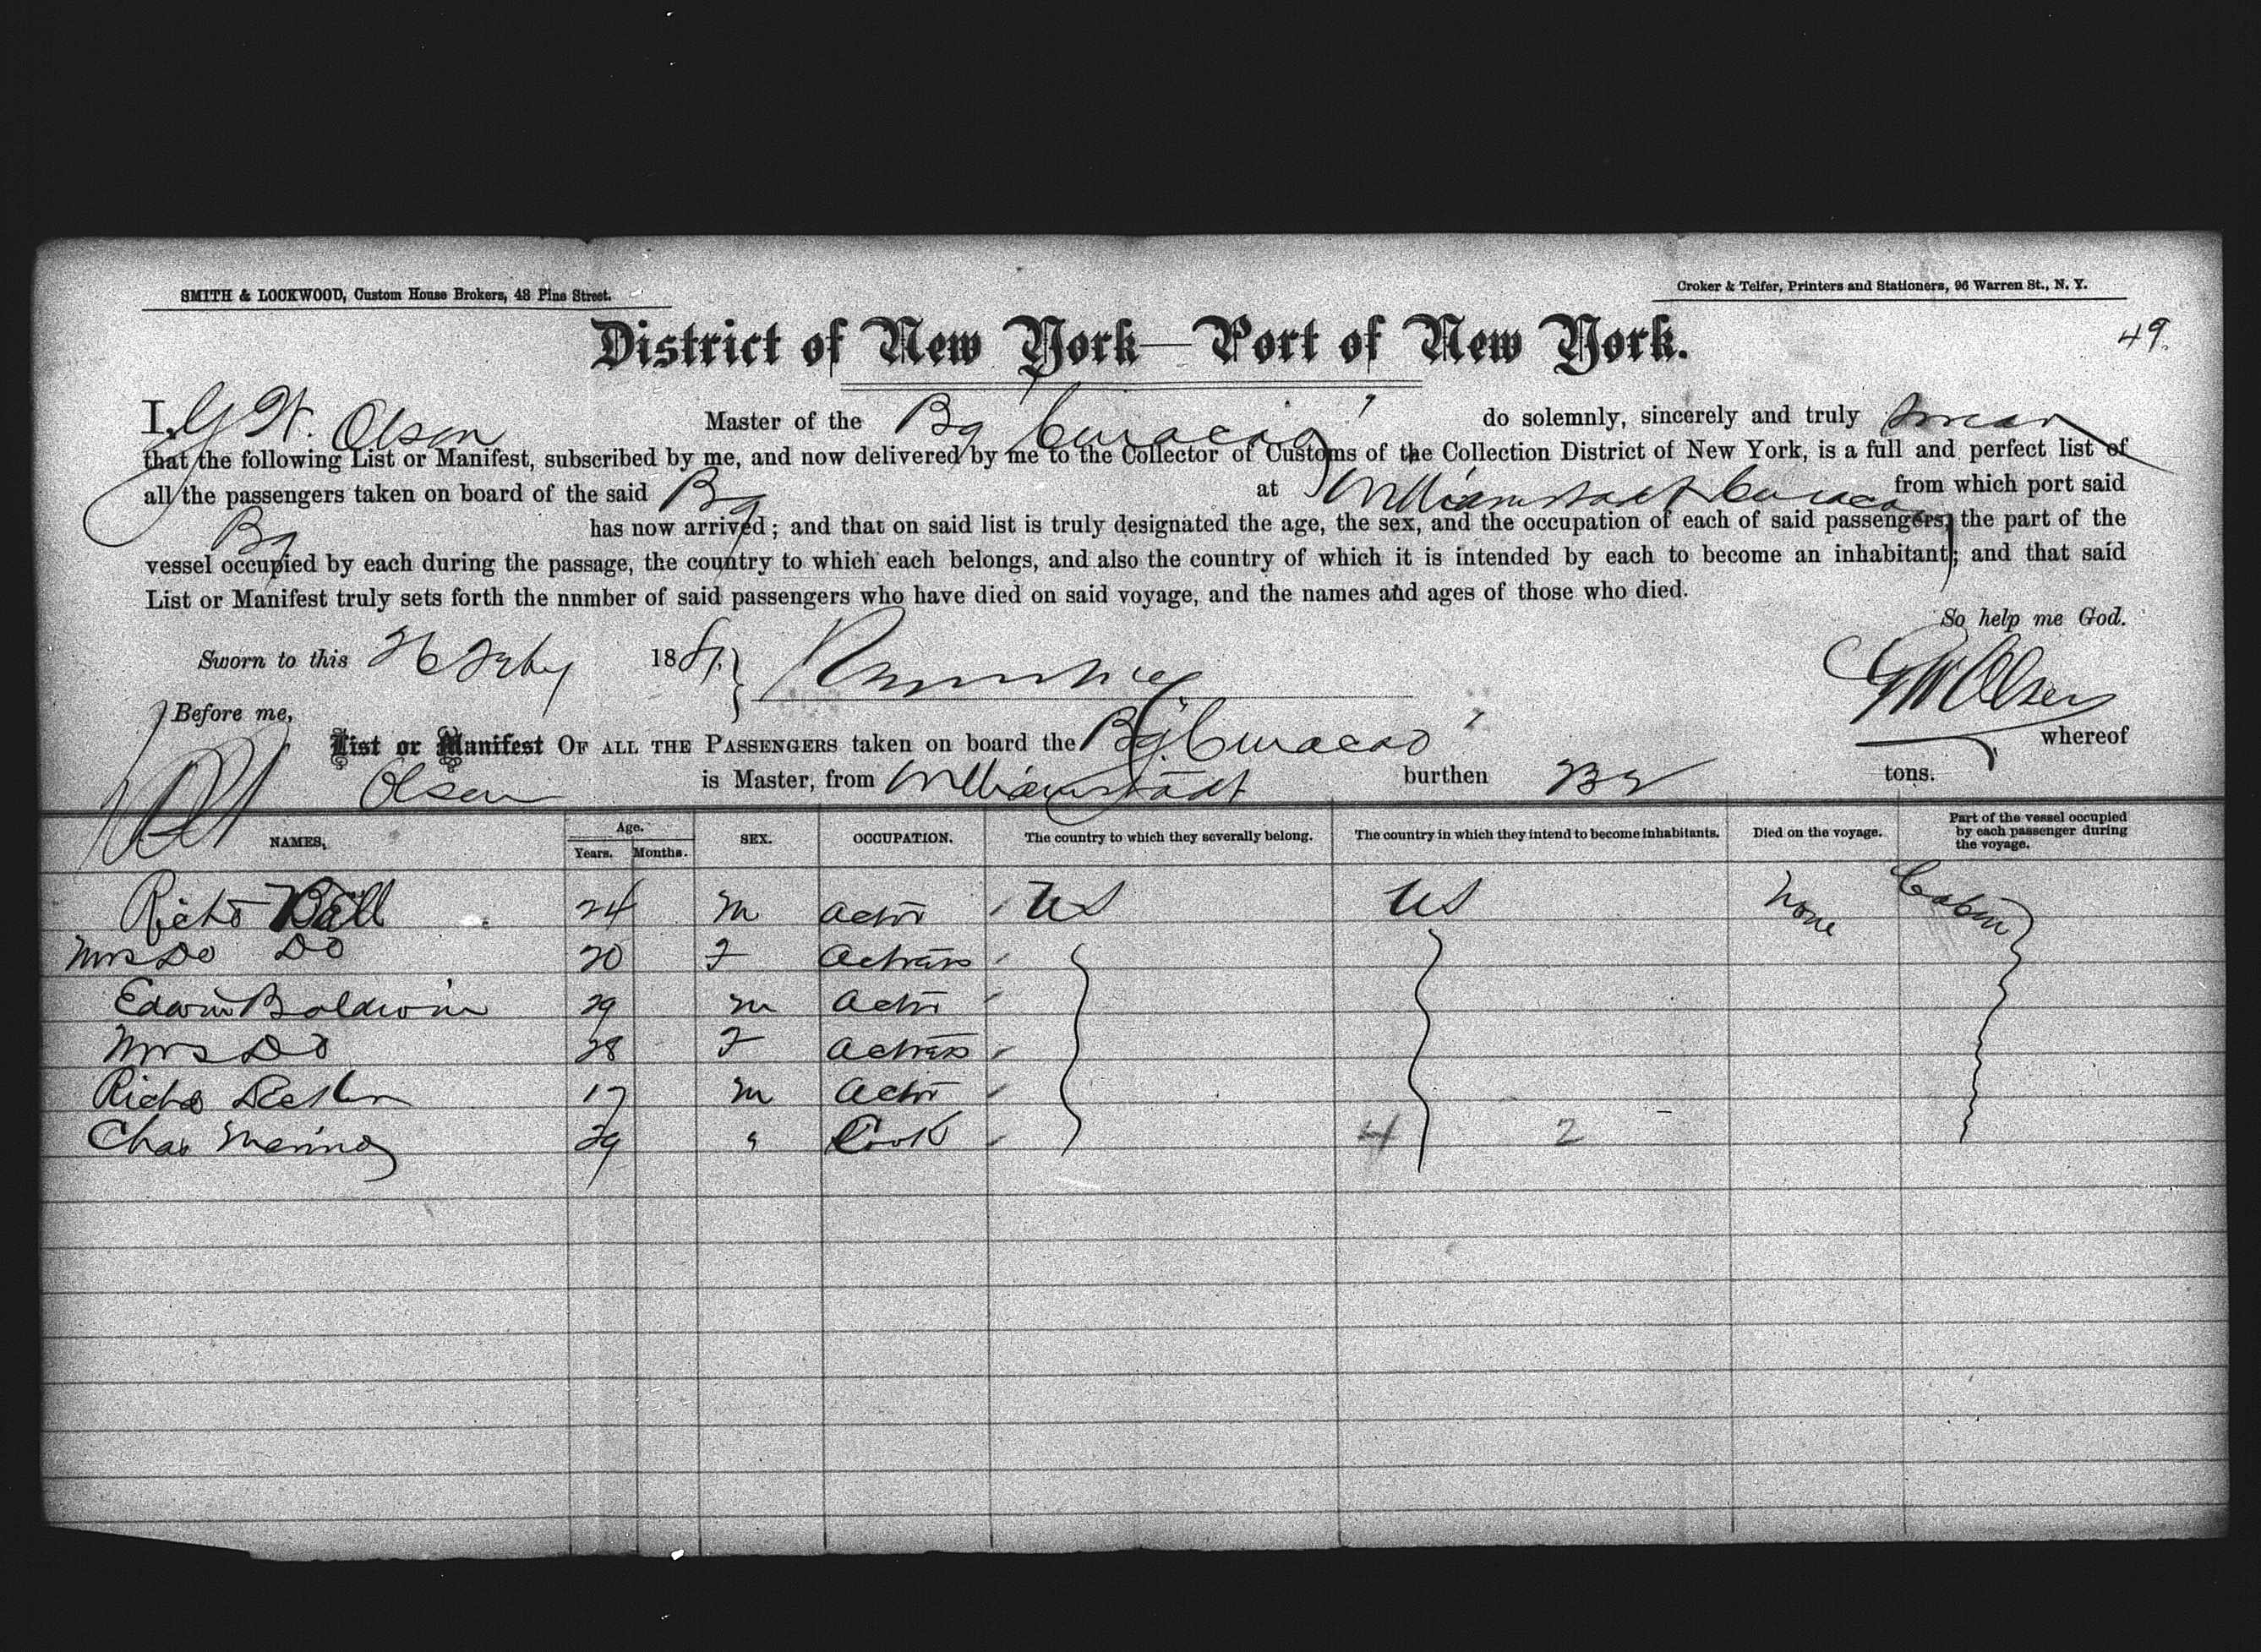 SMITH & LOCKWOOD, Custom House Brokers, 48 Pine Street.
Croker & Telfer, Printers and Stationers, 96 Warren St., N. Y.
49.
District of New York—Port of New York.
I, G W. Olsen Master of the Bg "Curacao" do solemnly, sincerely and truly swear
that the following List or Manifest, subscribed by me, and now delivered by me to the Collector of Customs of the Collection District of New York, is a full and perfect list of
all the passengers taken on board of the said Bg at Williamstadt Curacao from which port said
Bg has now arrived; and that on said list is truly designated the age, the sex, and the occupation of each of said passengers, the part of the
vessel occupied by each during the passage, the country to which each belongs, and also the country of which it is intended by each to become an inhabitant; and that said
List or Manifest truly sets forth the nnmber of said passengers who have died on said voyage, and the names and ages of those who died.
So help me God.
Sworn to this 26 Feby 1881. GW Olsen
Before me,
List or Manifest OF ALL THE PASSENGERS taken on board the Bg "Curacao" whereof
Olsen is Master, from Williamstadt burthen tons.
NAMES. Age. Years. Months. SEX. OCCUPATION. The country to which they severally belong. The country in which they intend to become inhabitants. Died on the voyage. Part of the vessel occupied by each passenger during the voyage.
Richd Ball 24 m actor US US None Cabin
Mrs Do Do 20 F Actress
Edwin Baldwin 29 m actor
Mrs Do 28 F actress
Richd 17 m actor
Chas 29 " Cook 4 2